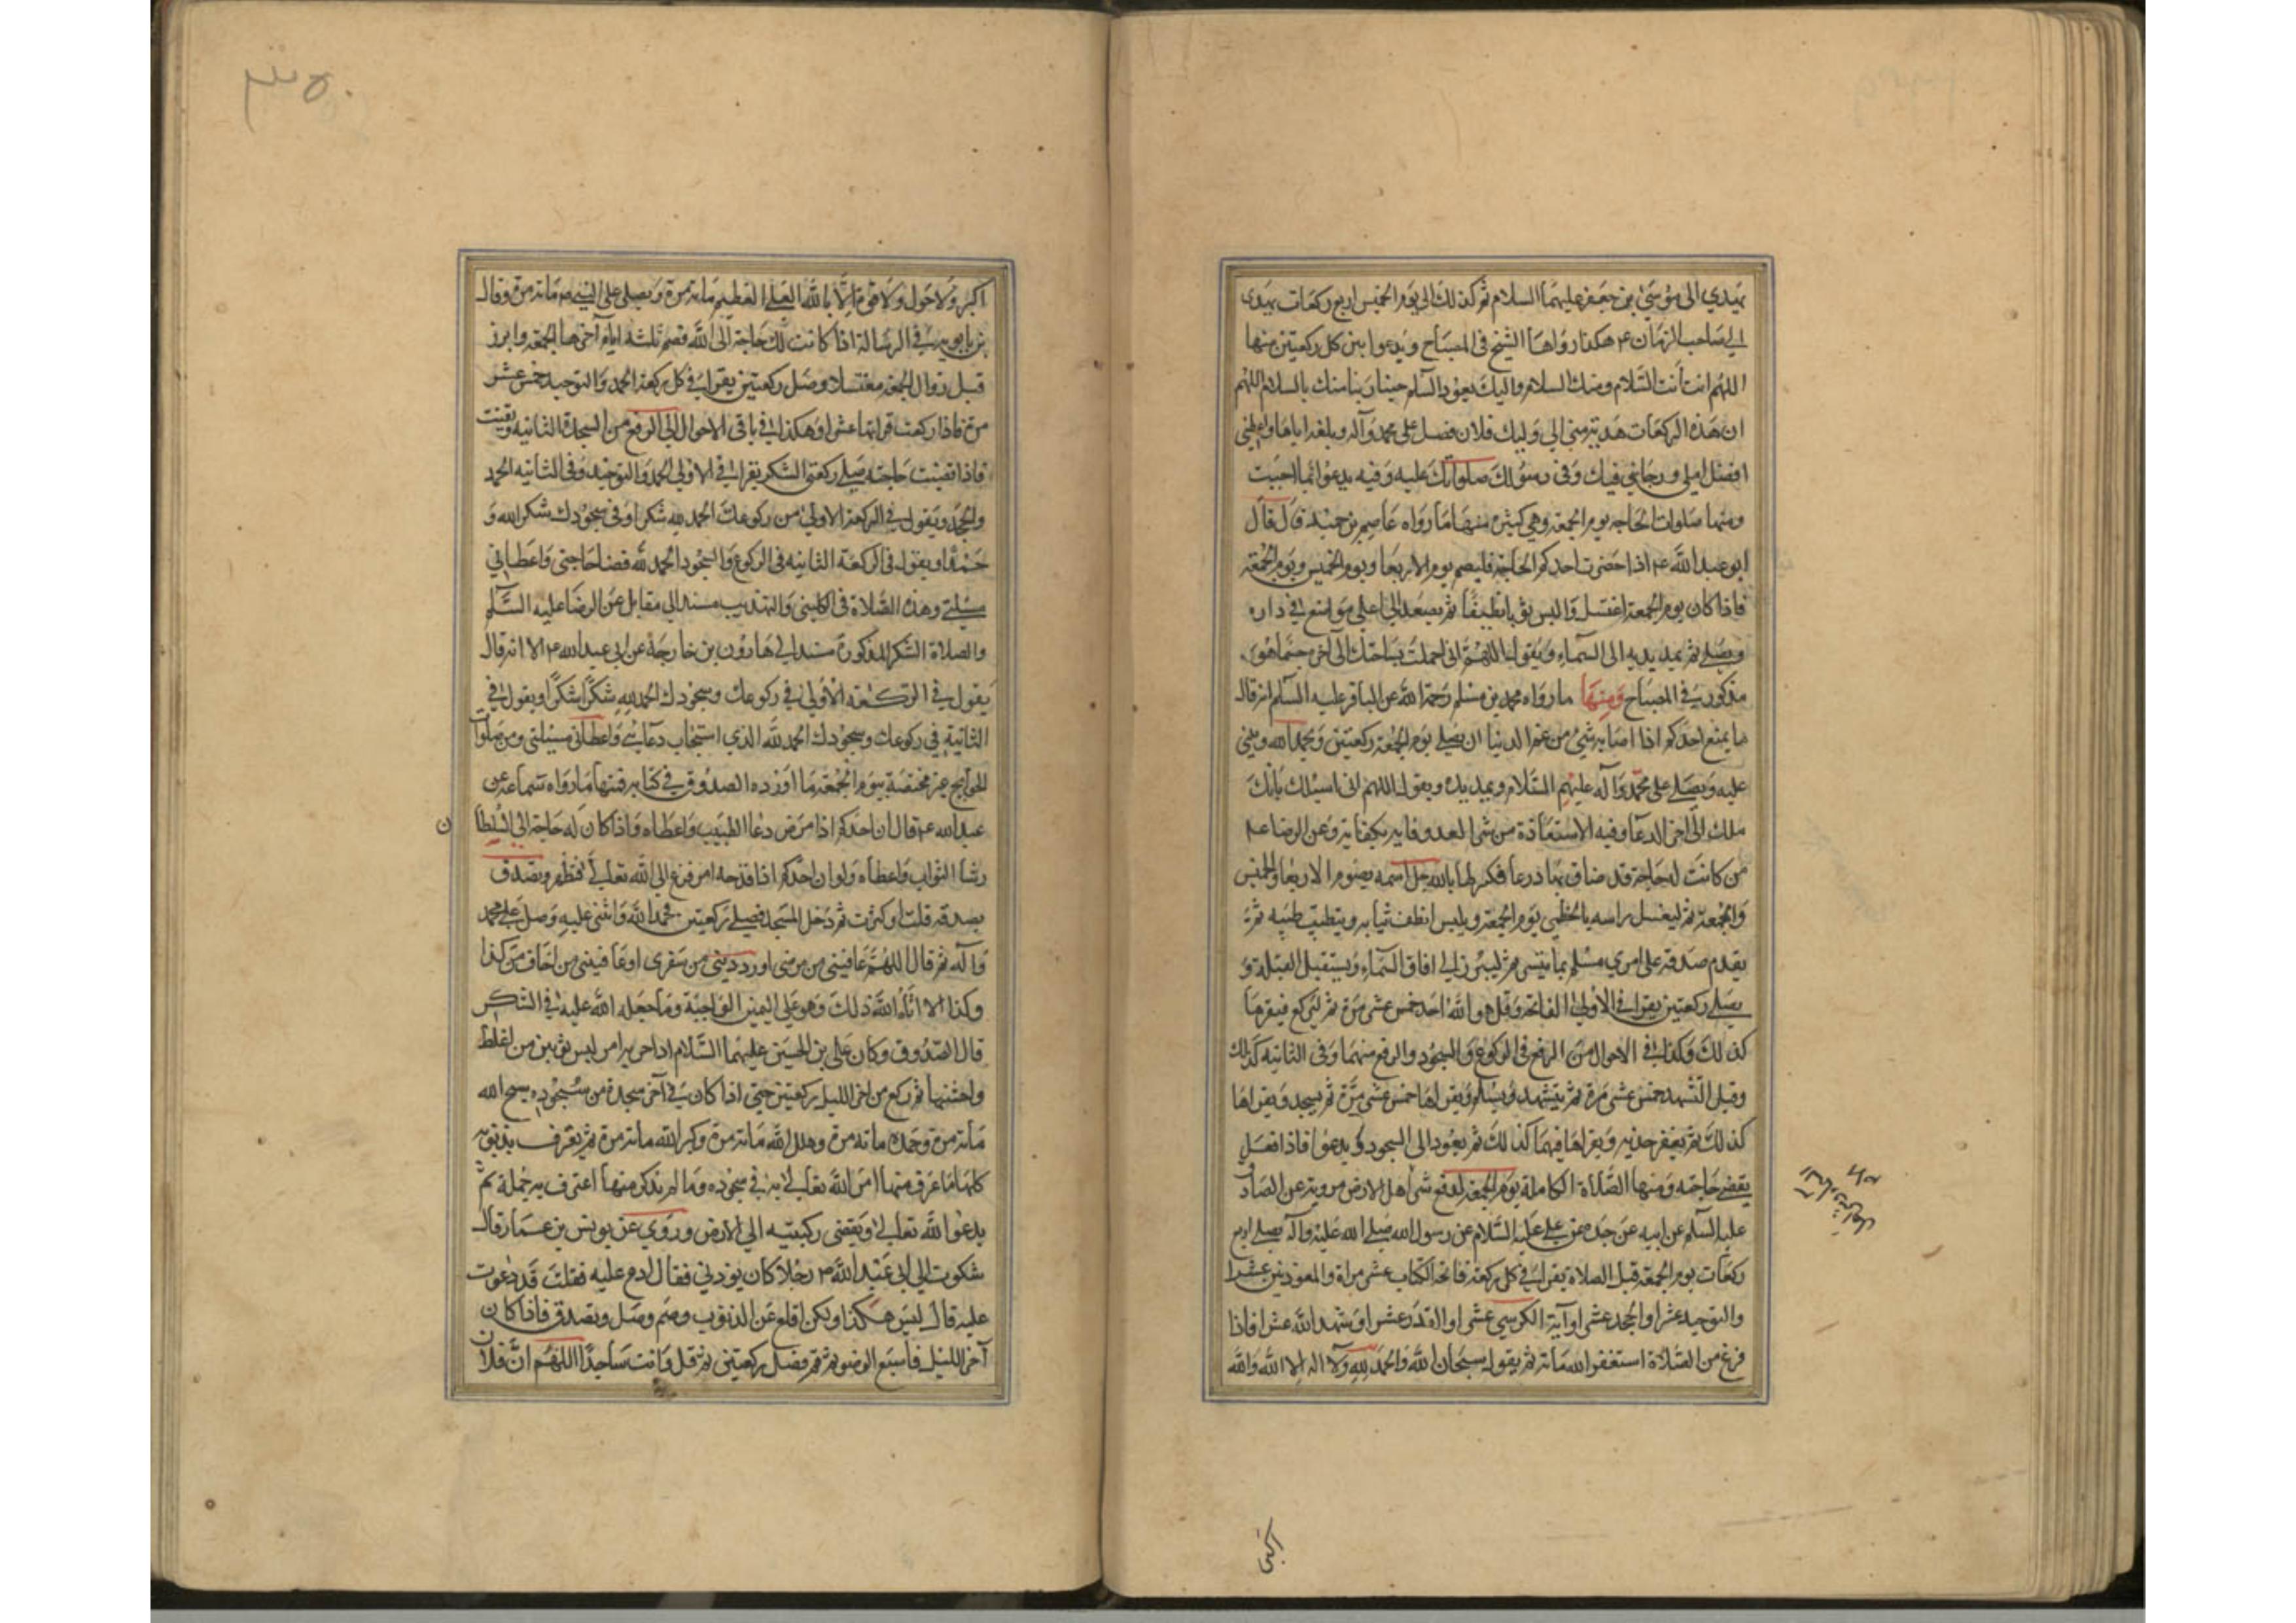 يهدي الى موسى بن جعفر عليهما السلام ثم كذلك الى يوم الخميس اربع ركعات يهدى
الى صاحب الزمان ع هكذا رواها الشيخ في المصباح ويدعوا بين كل ركعتين منها
اللهم انت أنت السلام ومنك السلام واليك يعود السلم حينا ربنا منك بالسلام اللهم
ان هذه الركعات هدية مني الى وليك فلان فصل على محمد وآله وبلغه اياها واعطني
افضل املي ورجائي فيك وفى رسولك صلواتك عليه وفيه يدعوا بما احببت
ومنها صلوات الحاجه يوم الجمعه وهي كثيرة منها ما رواه عاصم بن حميد قال قال
ابو عبد الله ع اذا حضرت احدكم الحاجة فليصم يوم الاربعا ويوم الخميس ويوم الجمعة
فاذا كان يوم الجمعة اغتسل والبس ثوبا نظيفا ثم يصعد الى اعلى موضع في داره
ويصلى ثم يمد يديه الى السماء ويقول اللهم انى احللت بساحتك الى آخر حيثما هو
مذكور في المصباح ومنها ما رواه محمد بن مسلم رحمة الله عن الباقر عليه السلم انه قال
ما يمنع احدكم اذا اصابه شئ من غم الدنيا ان يصلى يوم الجمعة ركعتين ويحمد الله ويثني
عليه ويصلى على محمد وآله عليهم السلام ويمد يده ويقول اللهم انى اسئلك بانك
ملك الى اخر الدعا وفيه الاستعاذة من شر العدو فانه يكفانه وعن الرضا ع
من كانت له حاجة قد ضاق بها ذرعا فلينزلها بالله جل اسمه يصوم الاربعا والخميس
والجمعة ثم ليغسل راسه بالخطمي يوم الجمعة ويلبس انظف ثيابه ويتطيب طيبه ثم
يقدم صدقه على امرئ مسلم بما تيسر ثم ليبرز الى افاق السماء ويستقبل القبلة و
يصلى ركعتين يقرا في الاولى الفاتحه وقل هو الله احد خمس عشر مرة ثم ليركع فيقرها
كذلك وكذا في الاحوال من الرفع في الركوع والسجود والرفع منهما وفى الثانيه كذلك
وقبل التشهد خمس عشر مرة ثم يتشهد ويسلم ويقراها خمس عشر مرة ثم يسجد ويقراها
كذلك ثم يعفر خديه ويقراها فيهما كذلك ثم يعود الى السجود ويدعوا فاذا فعل
يقضى حاجته ومنها الصلاة الكاملة يوم الجمعة لدفع شر اهل الارض مروية عن الصادق
عليه السلم عن ابيه عن جده عن على عليه السلام عن رسول الله صلى الله عليه وآله يصلى اربع
ركعات يوم الجمعة قبل الصلاة يقرا في كل ركعة فاتحة الكتاب عشر مراة والمعوذتين عشرا
والتوحيد عشرا والجحد عشرا وآية الكرسي عشرا والقدر عشرا وشهد الله عشرا فاذا
فرغ من الصلاة استغفر الله مائة ثم يقول سبحان الله والحمد لله ولا اله الا الله والله
اكبر
اكبر ولا حول ولا قوة الا بالله العلى العظيم مائة مرة ويصلى على النبي ص مائة مرة وقال
بن بابويه في الرسالة اذا كانت لك حاجة الى الله فصم ثلثه ايام آخرها الجمعة وابرز
قبل زوال الجمعه مغتسلا وصل ركعتين يقرا في كل ركعة الحمد والتوحيد خمس عشر
مرة فاذا ركعت قراتها عشرا وهكذا في باقى الاحوال الى الرفع من السجدة الثانيه ويقنت
فاذا قضيت حاجته صلى ركعتى الشكر يقرا في الاولى الحمد والتوحيد وفى الثانيه الحمد
والجحد ويقول في الركعة الاولى من ركوعك الحمد لله شكرا وفى سجودك شكرا لله و
حمدا ويقول فى الركعة الثانيه في الركوع والسجود الحمد لله قضا حاجتى واعطانى
مسئلتى وهذه الصلاة في الكلينى والتهذيب مسند الى مقاتل عن الرضا عليه السلم
والصلاة الشكر المذكورة مسند الى هارون بن خارجة عن ابى عبد الله ع الا انه قال
يقول في الركعة الاولى في ركوعك وسجودك الحمد لله شكرا شكرا ويقول في
الثانية في ركوعك وسجودك الحمد لله الذي استجاب دعائى واعطانى مسئلتى ومن صلوات
الحوايج غير مختصة بيوم الجمعة ما اورده الصدوق في كتابه فمنها ما رواه سماعة عن
عبد الله ع قال ان احدكم اذا مرض دعا الطبيب واعطاه واذا كان له حاجة الى السلطان
رشا البواب واعطاه ولو ان احدكم اذا قدحه امر فزع الى الله تعالى فتطهر وتصدق
بصدقة قلت او كثرت ثم دخل المسجد فصلى ركعتين فحمد الله واثنى عليه وصل على محمد
وآله ثم قال اللهم عافيتنى من مرضى او رددتنى من سفرى او عافيتنى من اخاف من كذا
وكذا الا اتاه الله ذلك وهو على اليمين الواجبة وما جعله الله عليه في الشكر
قال الصدوق وكان على بن الحسين عليهما السلام اذا حزبه امر لبس ثوبين من اغلظ
واخشنها ثم ركع من اخر الليل ركعتين حتى اذا كان في آخر سجدة من سجوده سبح الله
مائة مرة وحمده مائه مرة وهلل الله مائة مرة وكبر الله مائة مرة ثم يعترف بذنوبه
كلها ما عرف منها اقر الله تعالى به في سجوده وما لم يذكر منها اعترف به جملة ثم
يدعوا لله تعالى ويفضى ركبتيه الى الارض وروي عن يونس بن عمار قال
شكوت الى ابى عبد الله ع رجلا كان يوذيني فقال ادع عليه فقلت قد دعوت
عليه قال ليس هكذا ولكن اقلع عن الذنوب وصم وصل وتصدق فاذا كان
آخر الليل فاسبغ الوضو ثم قم فصل ركعتين ثم قل وانت ساجدا اللهم ان فلان